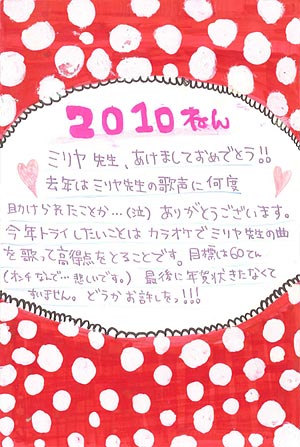 2010ねん
ミリヤ先生、あけましておめでとう!!
去年はミリヤ先生の歌声に何度
助けられたことか…(泣) ありがとうございます。
今年トライしたいことは カラオケでミリヤ先生の曲
を歌って高得点をとることです。目標は60てん
(わキなんで…悲しいです。) 最後に年賀状きたなくて
すいません。どうかお許しを!!!